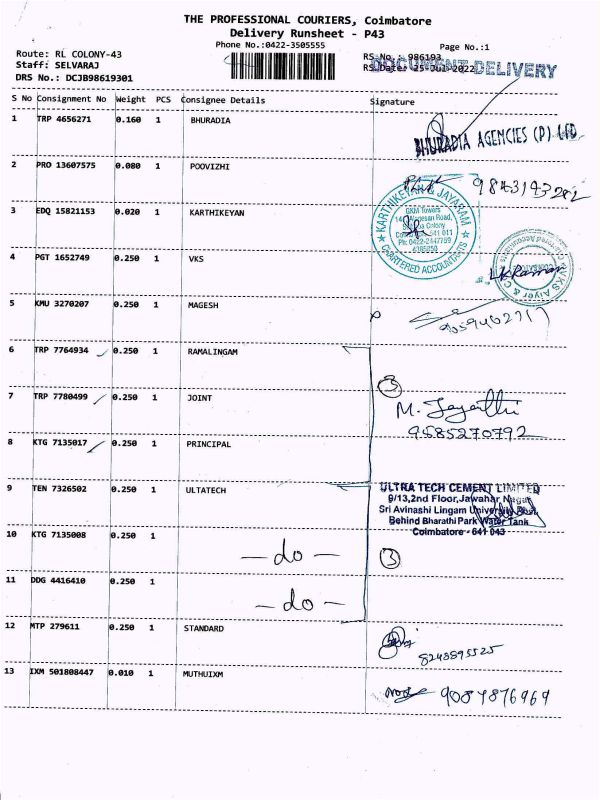 THE PROFESSIONAL COURIERS, Coimbatore
Delivery Runsheet - P43
Phone No.:0422-3505555
Page No.:1
Route: RL COLONY-43
RS No.: 986193
Staff: SELVARAJ
RS Date: 25-Jul-2022
DOCUMENT DELIVERY
DRS No.: DCJB98619301
S No Consignment No Weight PCS Consignee Details Signature
1 TRP 4656271 0.160 1 BHURADIA
BHURADIA AGENCIES (P) LTD
2 PRO 13607575 0.080 1 POOVIZHI
3 EDQ 15821153 0.020 1 KARTHIKEYAN
KARTHIKEYAN & JAYARAM
GKM Towers
Colony
641 011
Ph: 0422-2447769
CHARTERED ACCOUNTANTS
4 PGT 1652749 0.250 1 VKS
VKS Aiyer & Co
Chartered Accountants
L.K.Raman
5 KMU 3270207 0.250 1 MAGESH
6 TRP 7764934 0.250 1 RAMALINGAM
3
7 TRP 7780499 0.250 1 JOINT
M. Jayanthi
9585270792
8 KTG 7135017 0.250 1 PRINCIPAL
9 TEN 7326502 0.250 1 ULTATECH
ULTRA TECH CEMENT LIMITED
9/13,2nd Floor,Jawahar Nagar
Sri Avinashi Lingam University
Behind Bharathi Park Water Tank
Coimbatore - 641 043
10 KTG 7135008 0.250 1
- do -
3
11 DDG 4416410 0.250 1
- do -
12 MTP 279611 0.250 1 STANDARD
8248895525
13 IXM 501808447 0.010 1 MUTHUIXM
9087876969